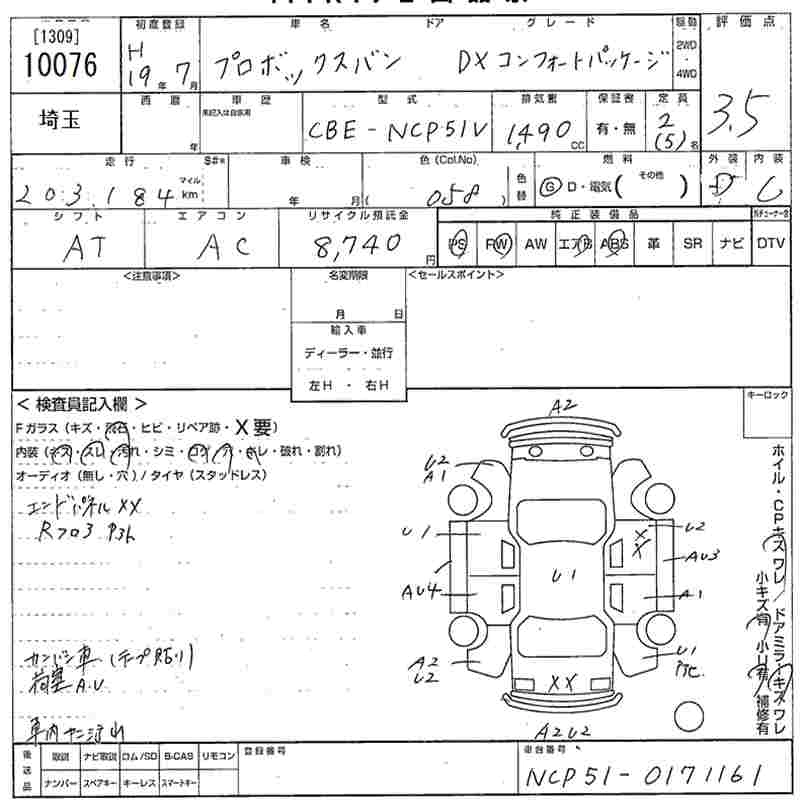 [1309]
10076
初度登録
H
19年 7月
車名 ドア グレード
プロボックスバン DXコンフォートパッケージ
駆動
2WD
4WD
評価点
3.5
埼玉
西暦
年
車歴
未記入は自家用
型式
CBE-NCP51V
排気量
1,490 CC
保証書
有・無
定員
2
(5)名
走行 S#*
203,184 マイル km
車検
年 月
色(Col.No)
( 058 )
色替
燃料
G D・電気( その他 )
外装
D
内装
C
シフト
AT
エアコン
AC
リサイクル預託金
8,740円
純正装備品
PS PW AW エアB ABS 革 SR ナビ DTV
<注意事項>
名変期限
月 日
輸入車
ディーラー・並行
左H・右H
<セールスポイント>
キーロック
<検査員記入欄>
Fガラス(キズ・飛石・ヒビ・リペア跡・X要)
内装(キズ・スレ・汚れ・シミ・コゲ・穴・キレ・破れ・割れ)
オーディオ(無し・穴)/タイヤ(スタッドレス)
エンドパネルXX
Rフロア
カンバン車(テープ貼り)
荷室A.U
車内ヤニ
A2
U2
A1
U1
U2
X
X
AU3
U1
AU4
A1
A2
U2
U1
XX
A2U2
ホイル・CPキズワレ/ドアミラーキズワレ
小キズ有 小U有 補修有
後送品
取説 ナビ取説 ロム/SD B-CAS リモコン
ナンバー スペアキー キーレス スマートキー
登録番号
車台番号
NCP51-0171161